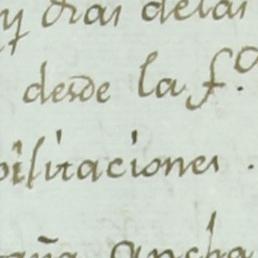 y dias delas
desde la f.º
bilitaciones .
ancha